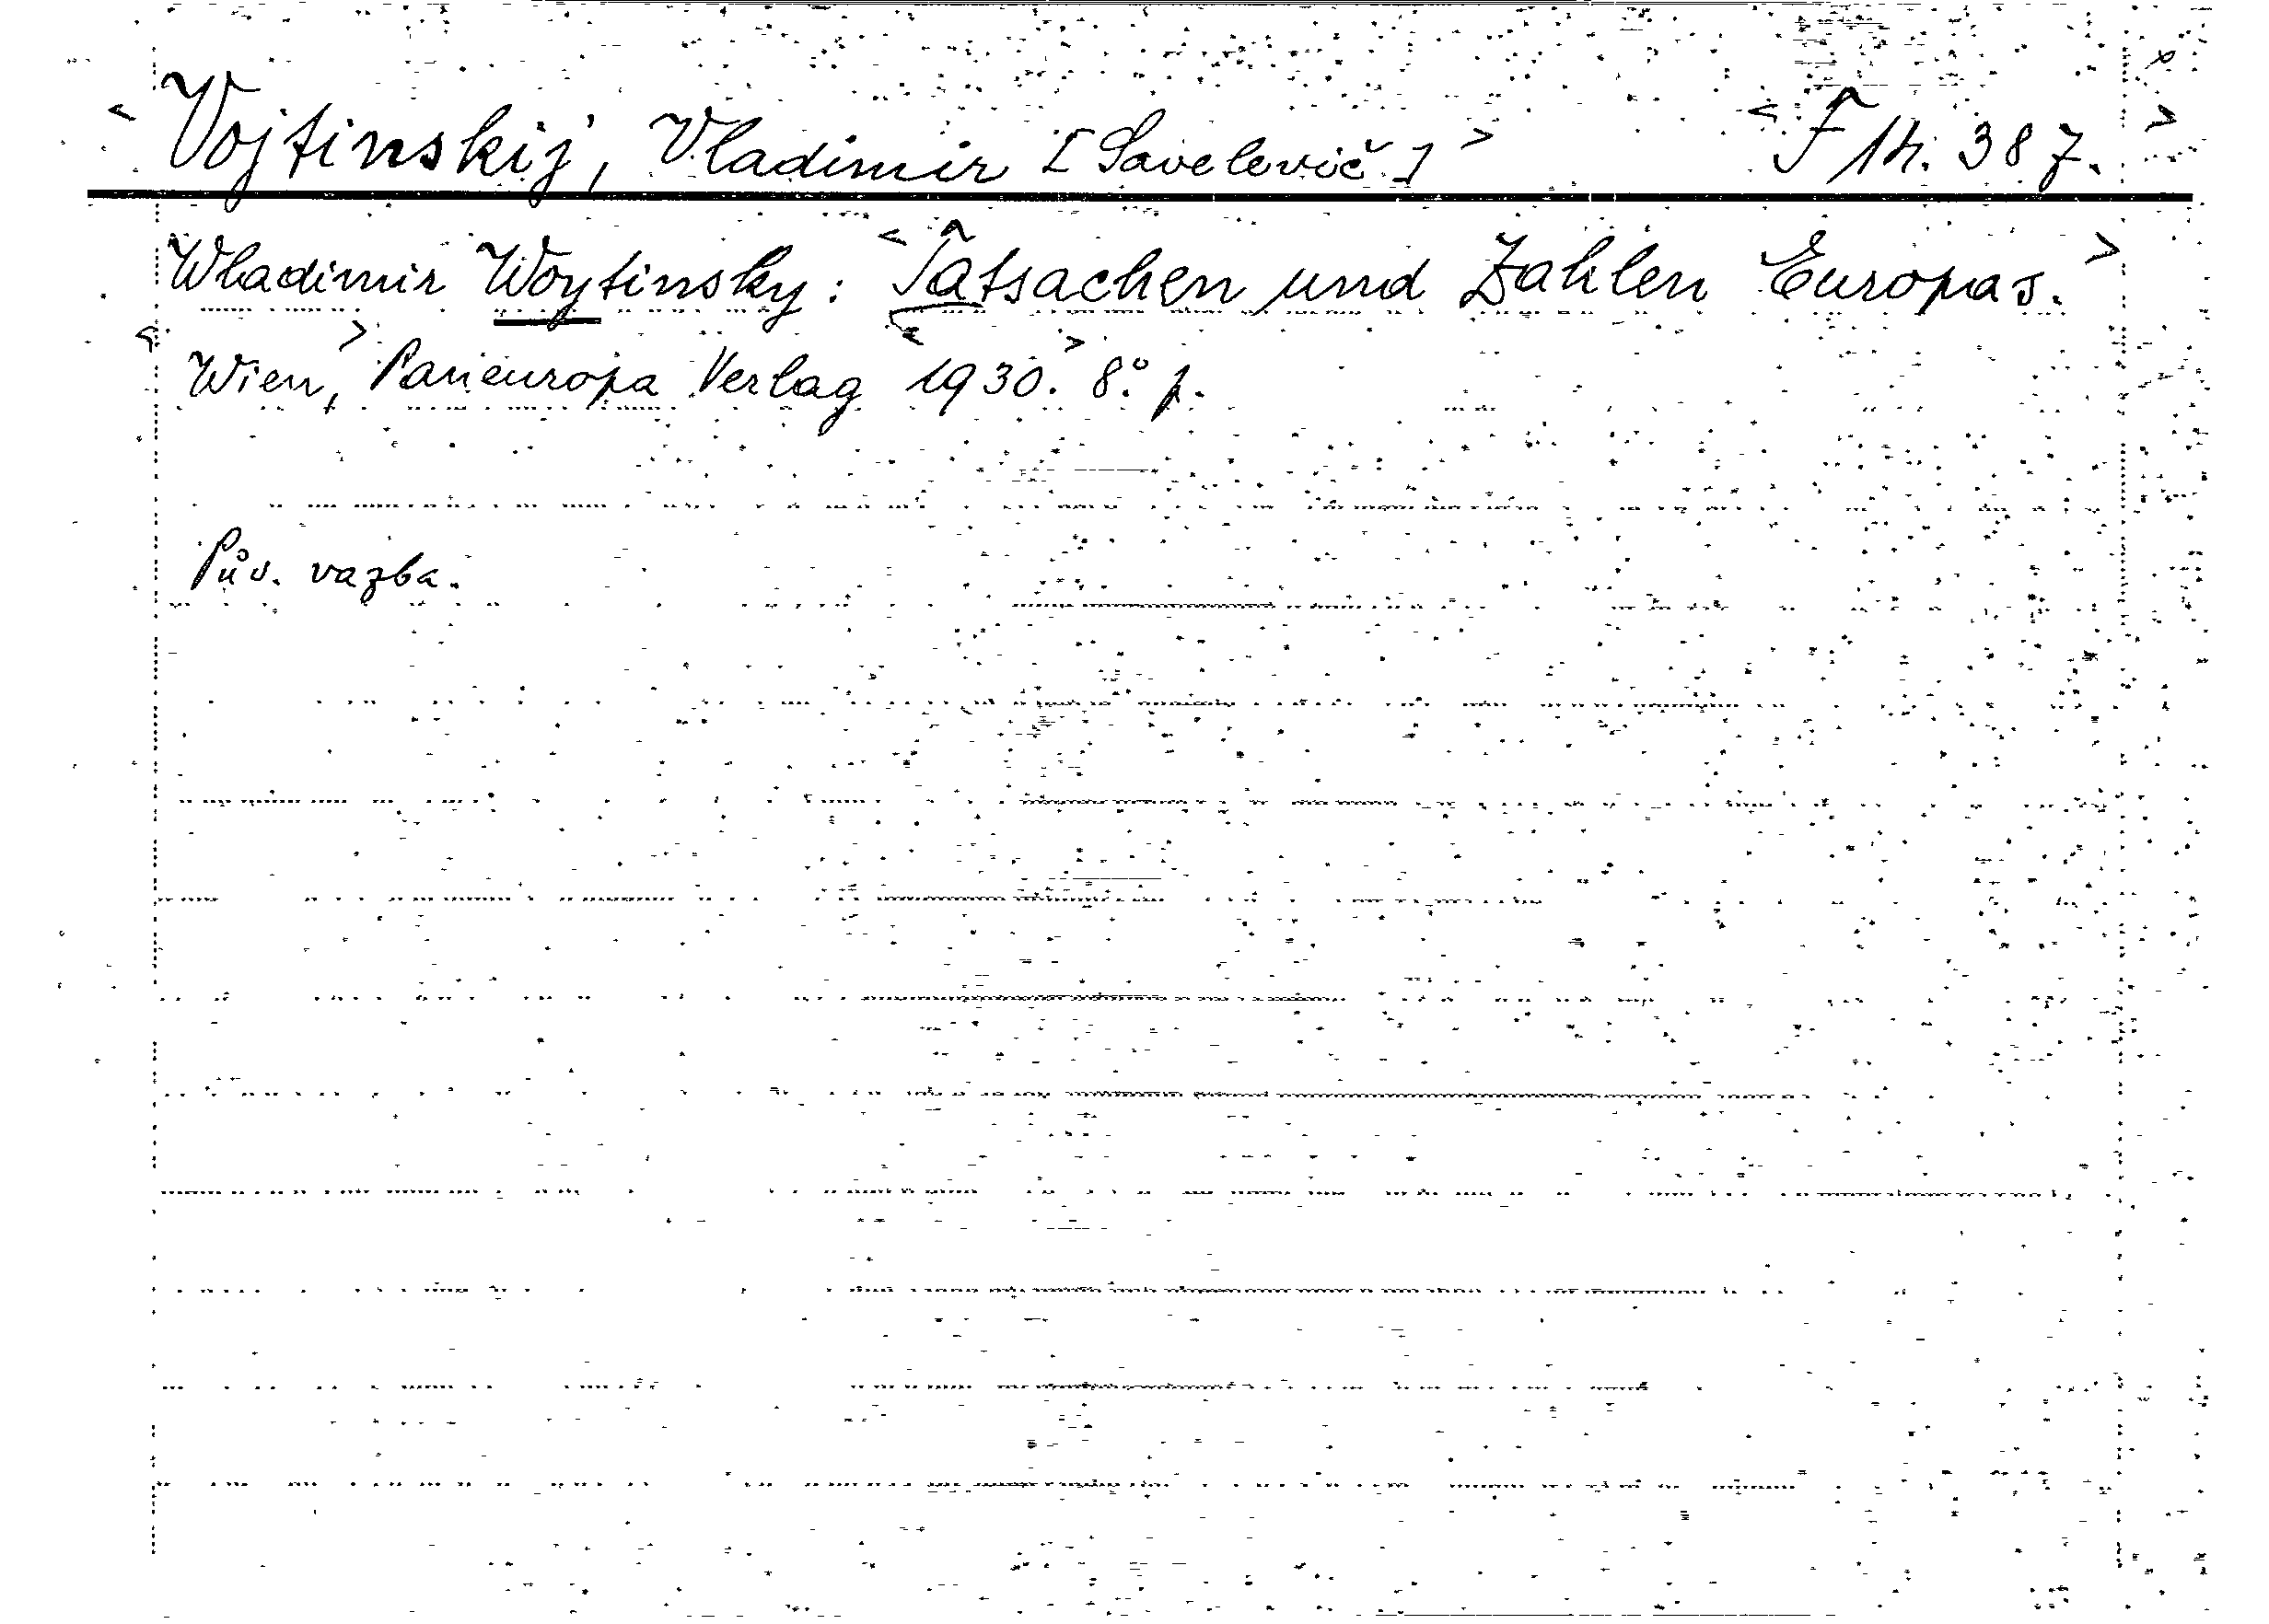 <Vojtinskij, Vladimir [Savelevič]> <F 14.387.>
Wladimir Woytinsky: <Tatsachen und Zahlen Europas.>
<Wien,> Paneuropa Verlag <1930.> 8° p.
Pův. vazba.